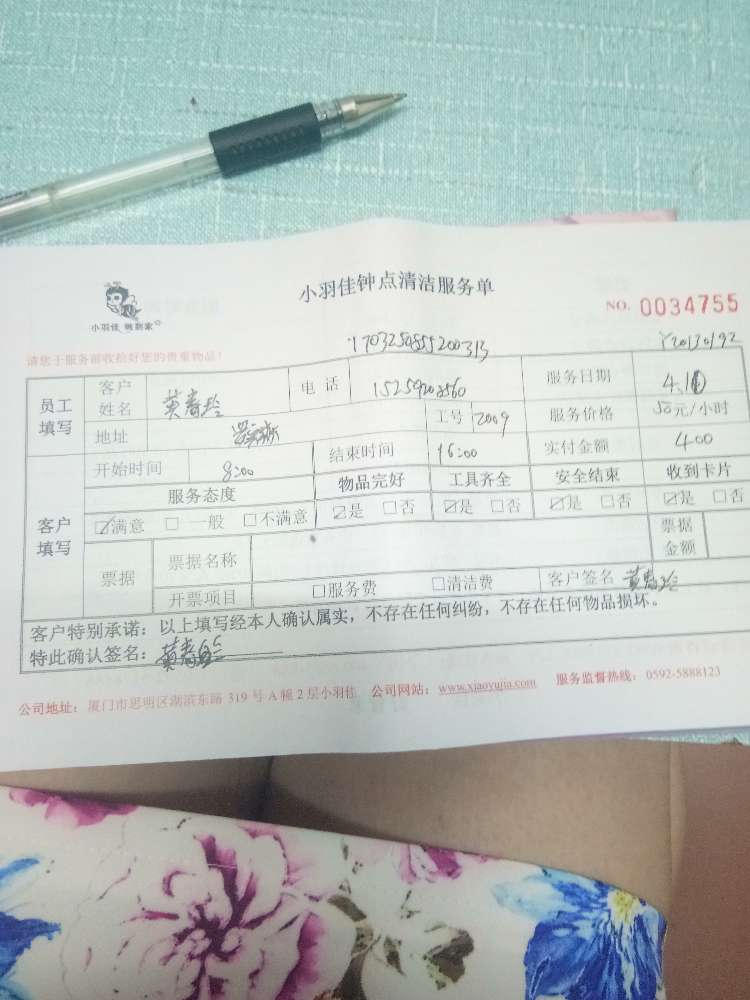 小羽佳钟点清洁服务单
NO. 0034755
小羽佳 姚到家
请您于服务前收拾好您的贵重物品!
1703250855200313
Y20130192
员工填写 客户姓名 黄春玲 电话 服务日期 4.10
地址 工号 2009 服务价格 50元/小时
客户填写 开始时间 8:00 结束时间 16:00 实付金额 400
服务态度 物品完好 工具齐全 安全结束 收到卡片
☑满意 □ 一般 □不满意 ☑是 □否 ☑是 □否 ☑是 □否 ☑是 □否
票据 票据名称 票据金额
开票项目 □服务费 □清洁费 客户签名 黄春玲
客户特别承诺:以上填写经本人确认属实,不存在任何纠纷,不存在任何物品损坏。
特此确认签名:黄春玲
公司地址:厦门市思明区湖滨东路 319 号 A 幢 2 层小羽佳 公司网站:www.xiaoyujia.com 服务监督热线:0592-5888123